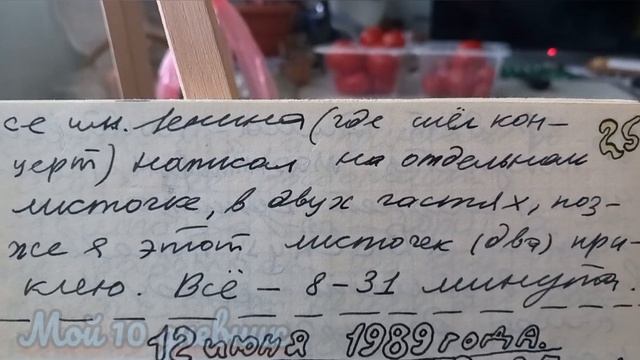 се им. Ленина (где шёл кон-
25
церт) написал на отдельном
листочке, в двух частях, поз-
же я этот листочек (два) при-
клею. Всё – 8-31 минута.
Мой 10 дневник
12 июня 1989 года.